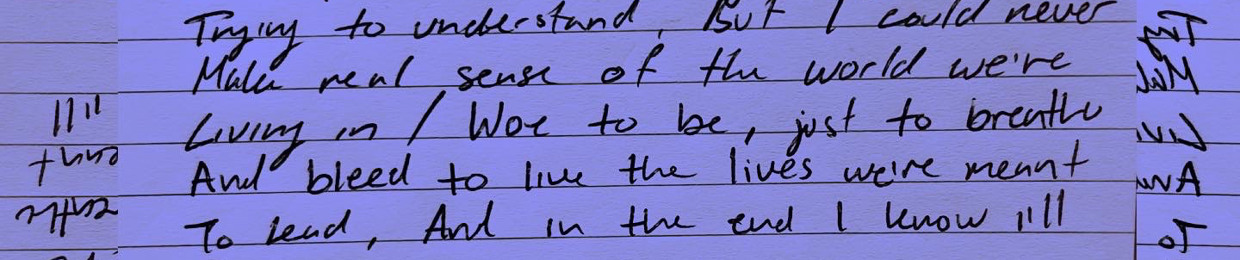 Trying to understand, But I could never
Make real sense of the world we're
Living in / Woe to be, just to breathe
And bleed to live the lives we're meant
To lead, And in the end I know i'll